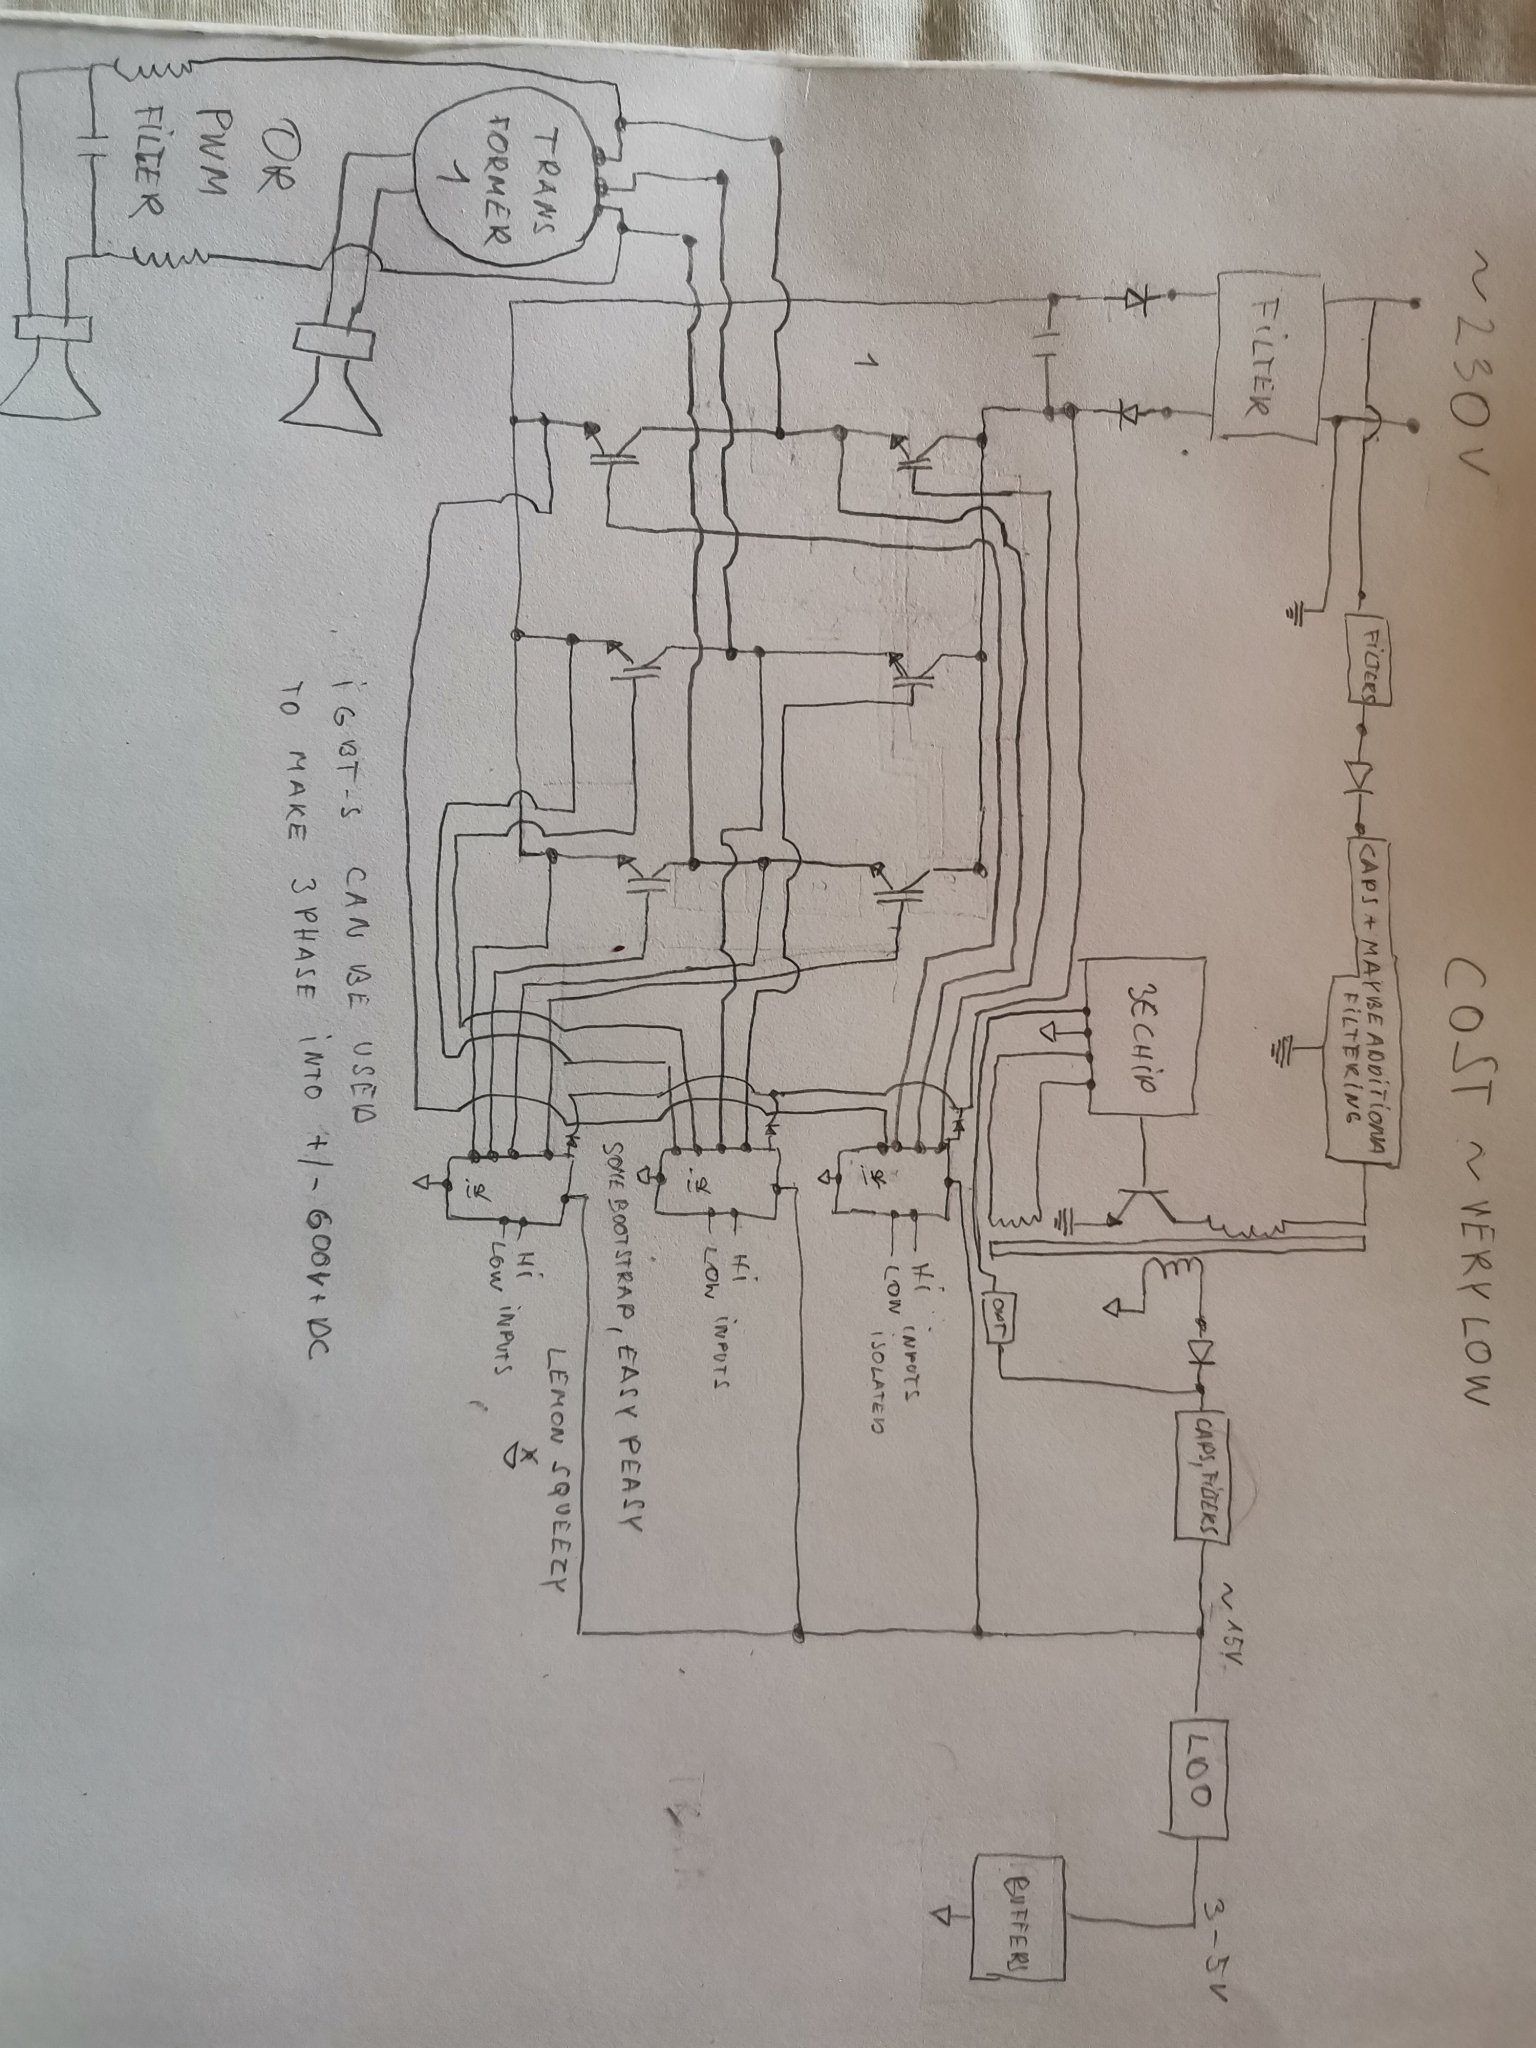 ~230V
COST ~ VERY LOW
FILTER
FILTERS
CAPS + MAYBE ADDITIONAL
FILTERING
3ECHIP
OUT
CAPS, FILTERS
~15V
LDO
3-5V
BUFFERS
1
TRANS
FORMER
1
OR
PWM
FILTER
Hi
LOW INPUTS
ISOLATED
Hi
LOW INPUTS
Hi
LOW INPUTS
SOME BOOTSTRAP, EASY PEASY
LEMON SQUEEZY
iGBT-S CAN BE USED
TO MAKE 3PHASE iNTO +/- 600V+ DC